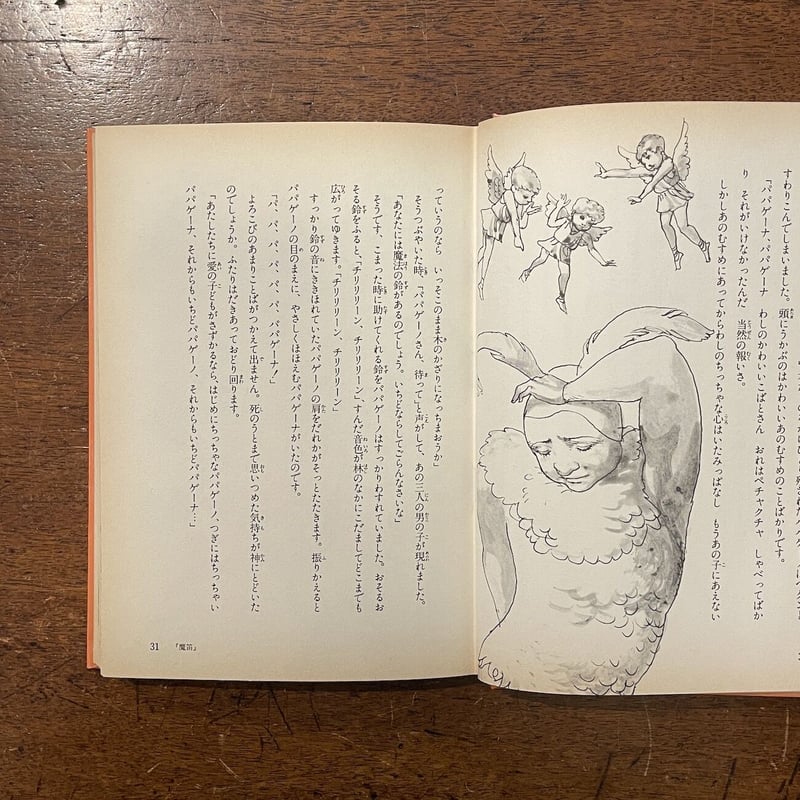 すわりこんでしまいました。頭にうかぶのはかわいいあのむすめのことばかりです。
「パパゲーナ、パパゲーナ　わしのかわいいこばとさん　おれはペチャクチャ　しゃべってばか
り　それがいけなかったんだ　当然の報いさ。
しかしあのむすめにあってからわしのちっちゃな心はいたみっぱなし　もうあの子にあえない
っていうのなら　いっそこのまま木のかざりになっちまおうか」
そうつぶやいた時、「パパゲーノさん、待って」と声がして、あの三人の男の子が現れました。
「あなたには魔法の鈴があるのでしょう。いちどならしてごらんなさいな」
そうです、こまった時に助けてくれる鈴をパパゲーノはすっかりわすれていました。おそるお
そる鈴をふると、「チリリリーン、チリリリーン」、すんだ音色が林のなかにこだましてどこまでも
広がってゆきます。「チリリリーン、チリリリーン」
すっかり鈴の音にききほれていたパパゲーノの肩をだれかがそっとたたきます。振りかえると
パパゲーノの目のまえに、やさしくほほえむパパゲーナがいたのです。
「パ、パ、パ、パ、パ、パ、パパゲーナ！」
よろこびのあまりことばがつかえて出ません。死のうとまで思いつめた気持ちが神にとどいた
のでしょうか。ふたりはだきあっておどり回ります。
「あたしたちに愛の子どもがさずかるなら、はじめにちっちゃなパパゲーノ、つぎにはちっちゃい
パパゲーナ、それからもいちどパパゲーノ、それからもいちどパパゲーナ…」
31 『魔笛』